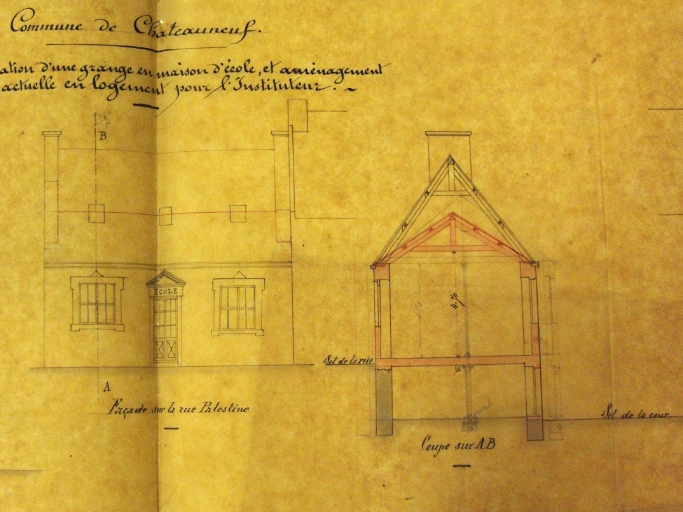 Commune de Chateauneuf.
ation d'une grange en maison d'école, et aménagement
actuelle en logement pour l'Instituteur.
B
ECOLE
Sol de la rue
A
Façade sur la rue Palestine
Sol de la cour
Coupe sur AB